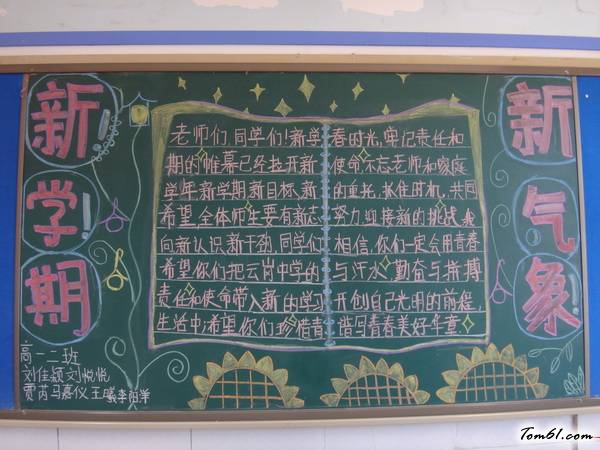 新学期
新气象
老师们,同学们!新学
期的帷幕已经拉开新
学年新学期新目标,新
希望,全体师生要有新志
向新认识新干劲,同学们
希望你们把云岗中学的
责任和使命带入新的学习
生活中;希望你们珍惜青
春时光,牢记责任和
使命不忘老师和家庭
的重托,抓住时机,共同
努力迎接新的挑战我
相信,你们一定会用青春
与汗水,勤奋与拼搏
开创自己光明的前程,
谱写青春美好华章
高一二班
刘佳颖刘悦悦
贾芮马嘉仪王曦李
Tom61.com